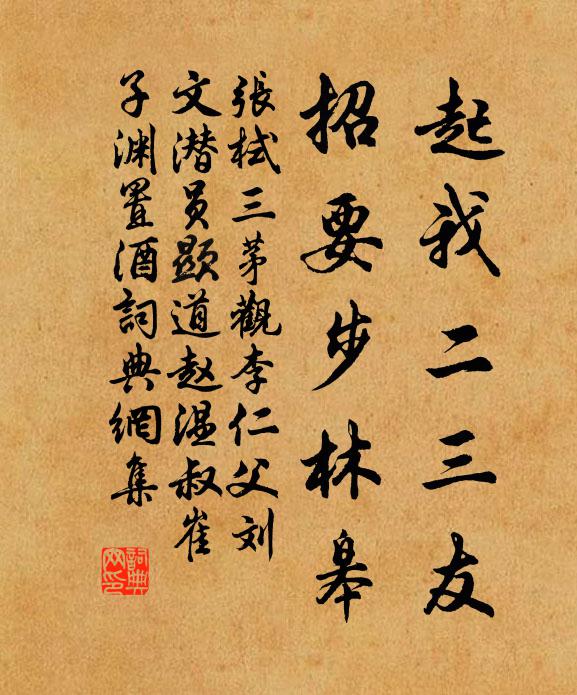 起我二三友
招要步林皋
張栻三茅觀李仁父刘
文潜员顯道赵温叔崔
子渊置酒詞典網集
詞典
网印